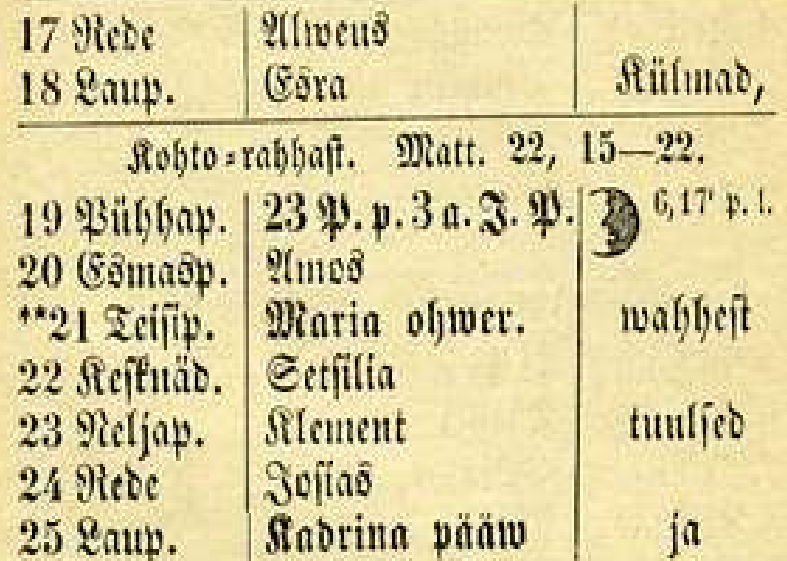 17 Rede Alweus
18 Laup. Esra Külmad,
Kohto-rahhast. Matt. 22, 15—22.
19 Pühhap. 23 P. p. 3 a. J. P. 6,17' p. l.
20 Esmasp. Amos
**21 Teisip. Maria ohwer. wahhest
22 Kesknäd. Setsilia
23 Neljap. Klement tuulsed
24 Rede Josias
25 Laup. Kadrina pääw ja